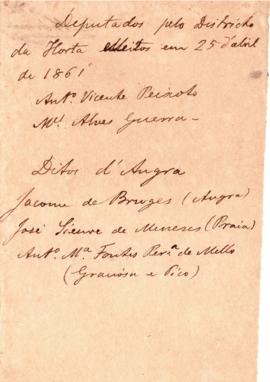 Deputados pelo Districto
da Horta eleitos em 25 d'abril
de 1861
Antº. Vicente Peixoto
Mel. Alves Guerra -
Ditos d'Angra
Jacome de Bruges (Angra)
José Sieuve de Meneses (Praia)
Antº. Mª Fontes Perª. de Mello
(Graciosa e Pico)